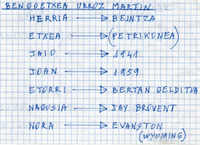 BENGOETXEA URROZ MARTIN
HERRIA → BEINTZA
ETXEA → (PETRIKONEA)
JAIO → 1941
JOAN → 1959
ETORRI → BERTAN GELDITUA
NAGUSIA → JAY BROVENT
NORA → EVANSTON
(WYOMING)